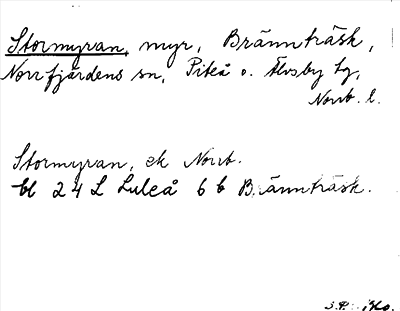 Stormyran, myr, Brännträsk,
Norrfjärdens sn, Piteå o. Älvsby tg,
Norrb. l.
Stormyran, ek Norrb.
bl 24 L Luleå 6 b Brännträsk.
S.P.